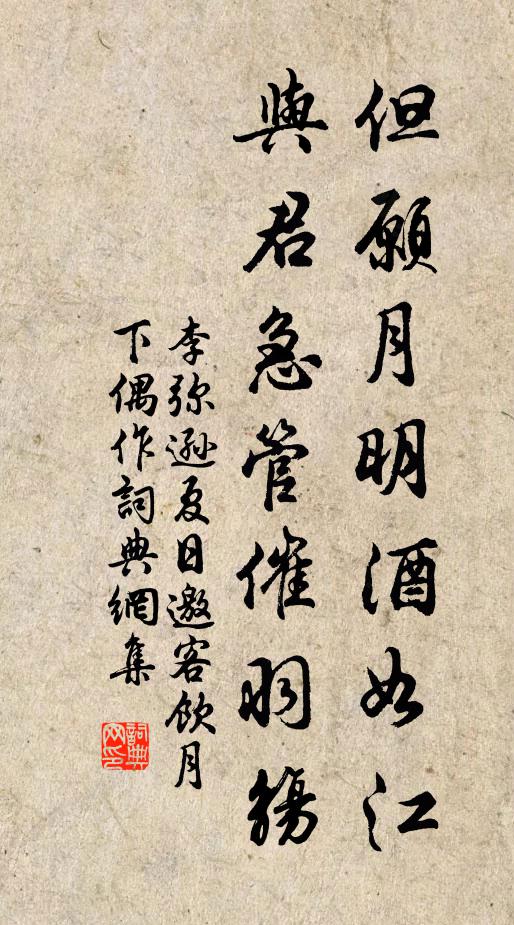 但願月明酒如江
與君急管催羽觴
李弥遜夏日邀客飲月
下偶作詞典網集
詞典
网印